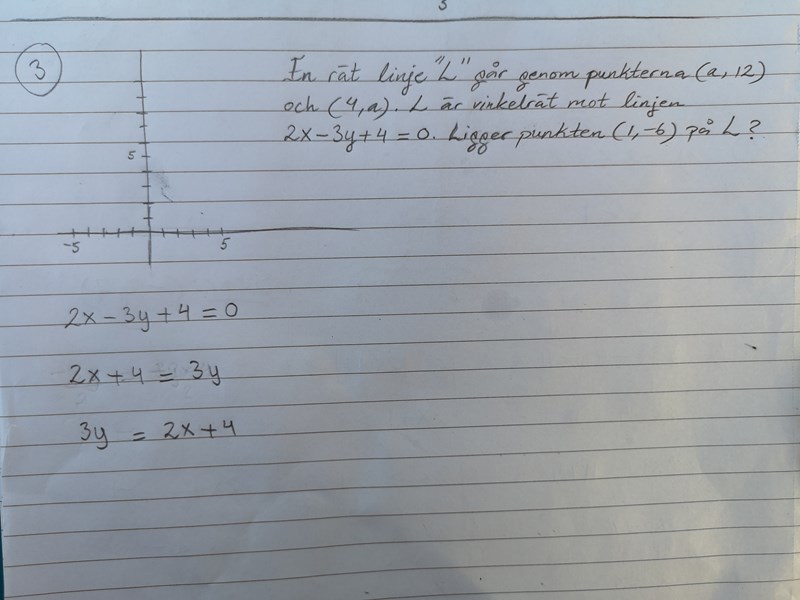 3
3
En rät linje "L" går genom punkterna (a, 12)
och (4, a). L är vinkelrät mot linjen
2x - 3y + 4 = 0. Ligger punkten (1, -6) på L?
5
-5
5
2x - 3y + 4 = 0
2x + 4 = 3y
3y = 2x + 4